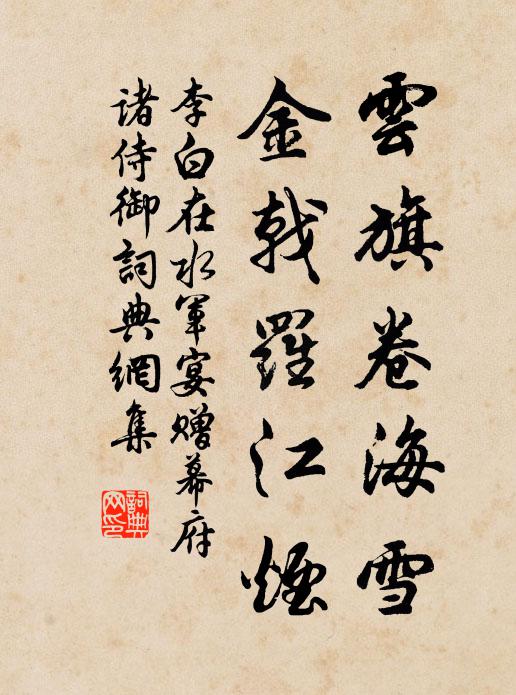 雲旗卷海雪
金戟羅江煙
李白在水軍宴贈幕府
諸侍御詞典網集
詞典網印